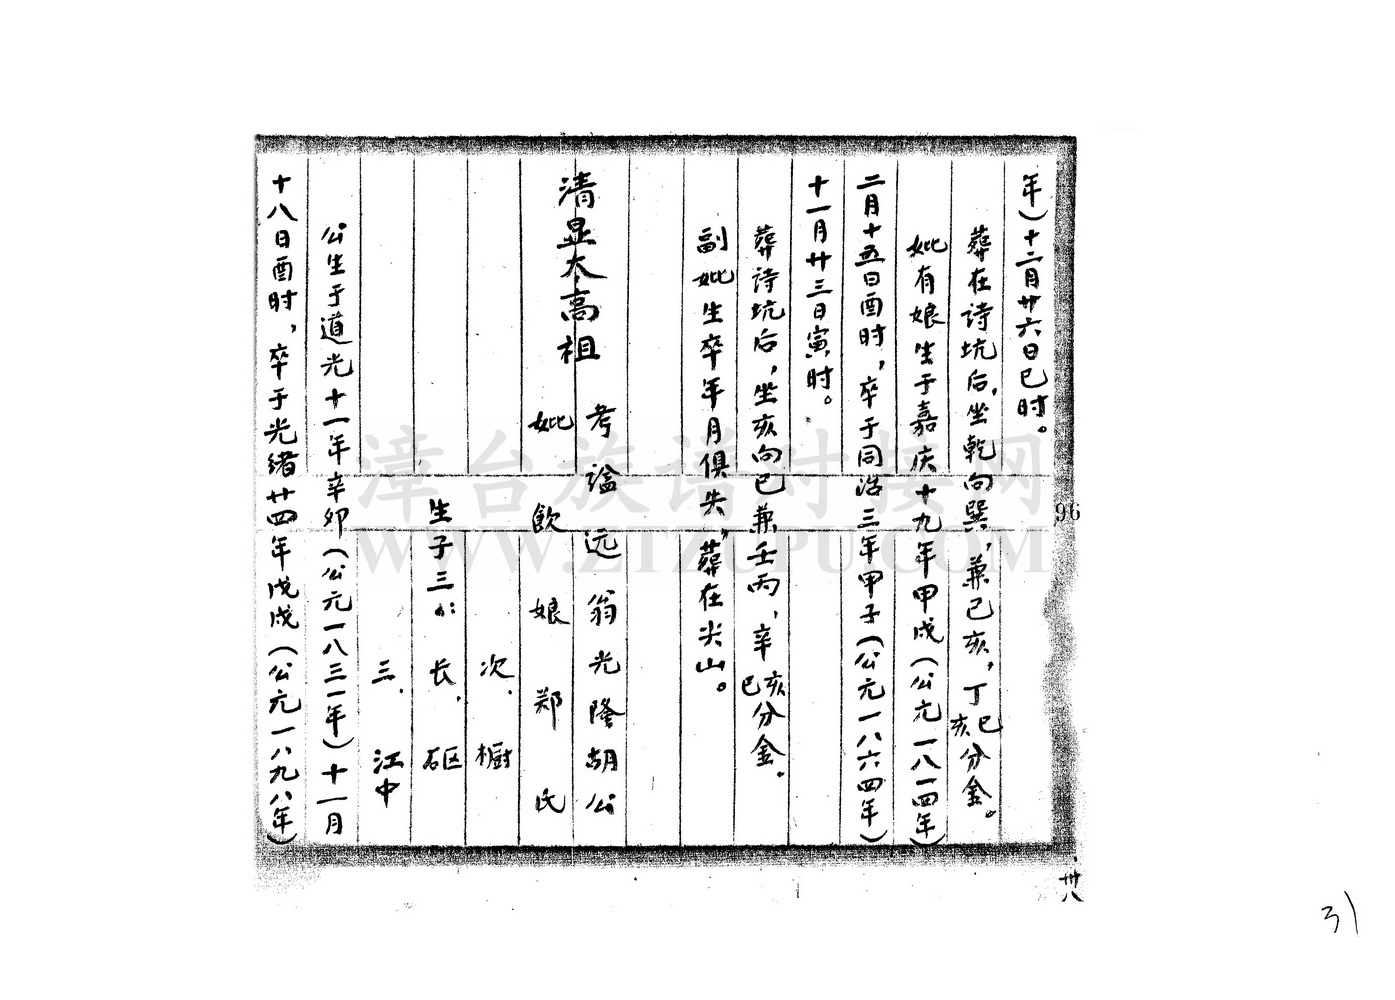 年）十二月廿六日巳时。
葬在诗坑后，坐乾向巽，兼巳亥，丁巳亥分金。
妣有娘生于嘉庆十九年甲戌（公元一八一四年）
二月十五日酉时，卒于同治三年甲子（公元一八六四年）
十一月廿三日寅时。
葬诗坑后，坐亥向巳兼壬丙，辛亥巳分金。
副妣生卒年月俱失，葬在尖山。
清显太高祖
考谥远翁光隆胡公
妣飲娘郑氏
次、橱
生子三：长、砿
三、江中
公生于道光十一年辛卯（公元一八三一年）十一月
十八日酉时，卒于光绪廿四年戊戌（公元一八九八年）
96
卅八
31
漳台族谱对接网
WWW.ZTZUPU.COM